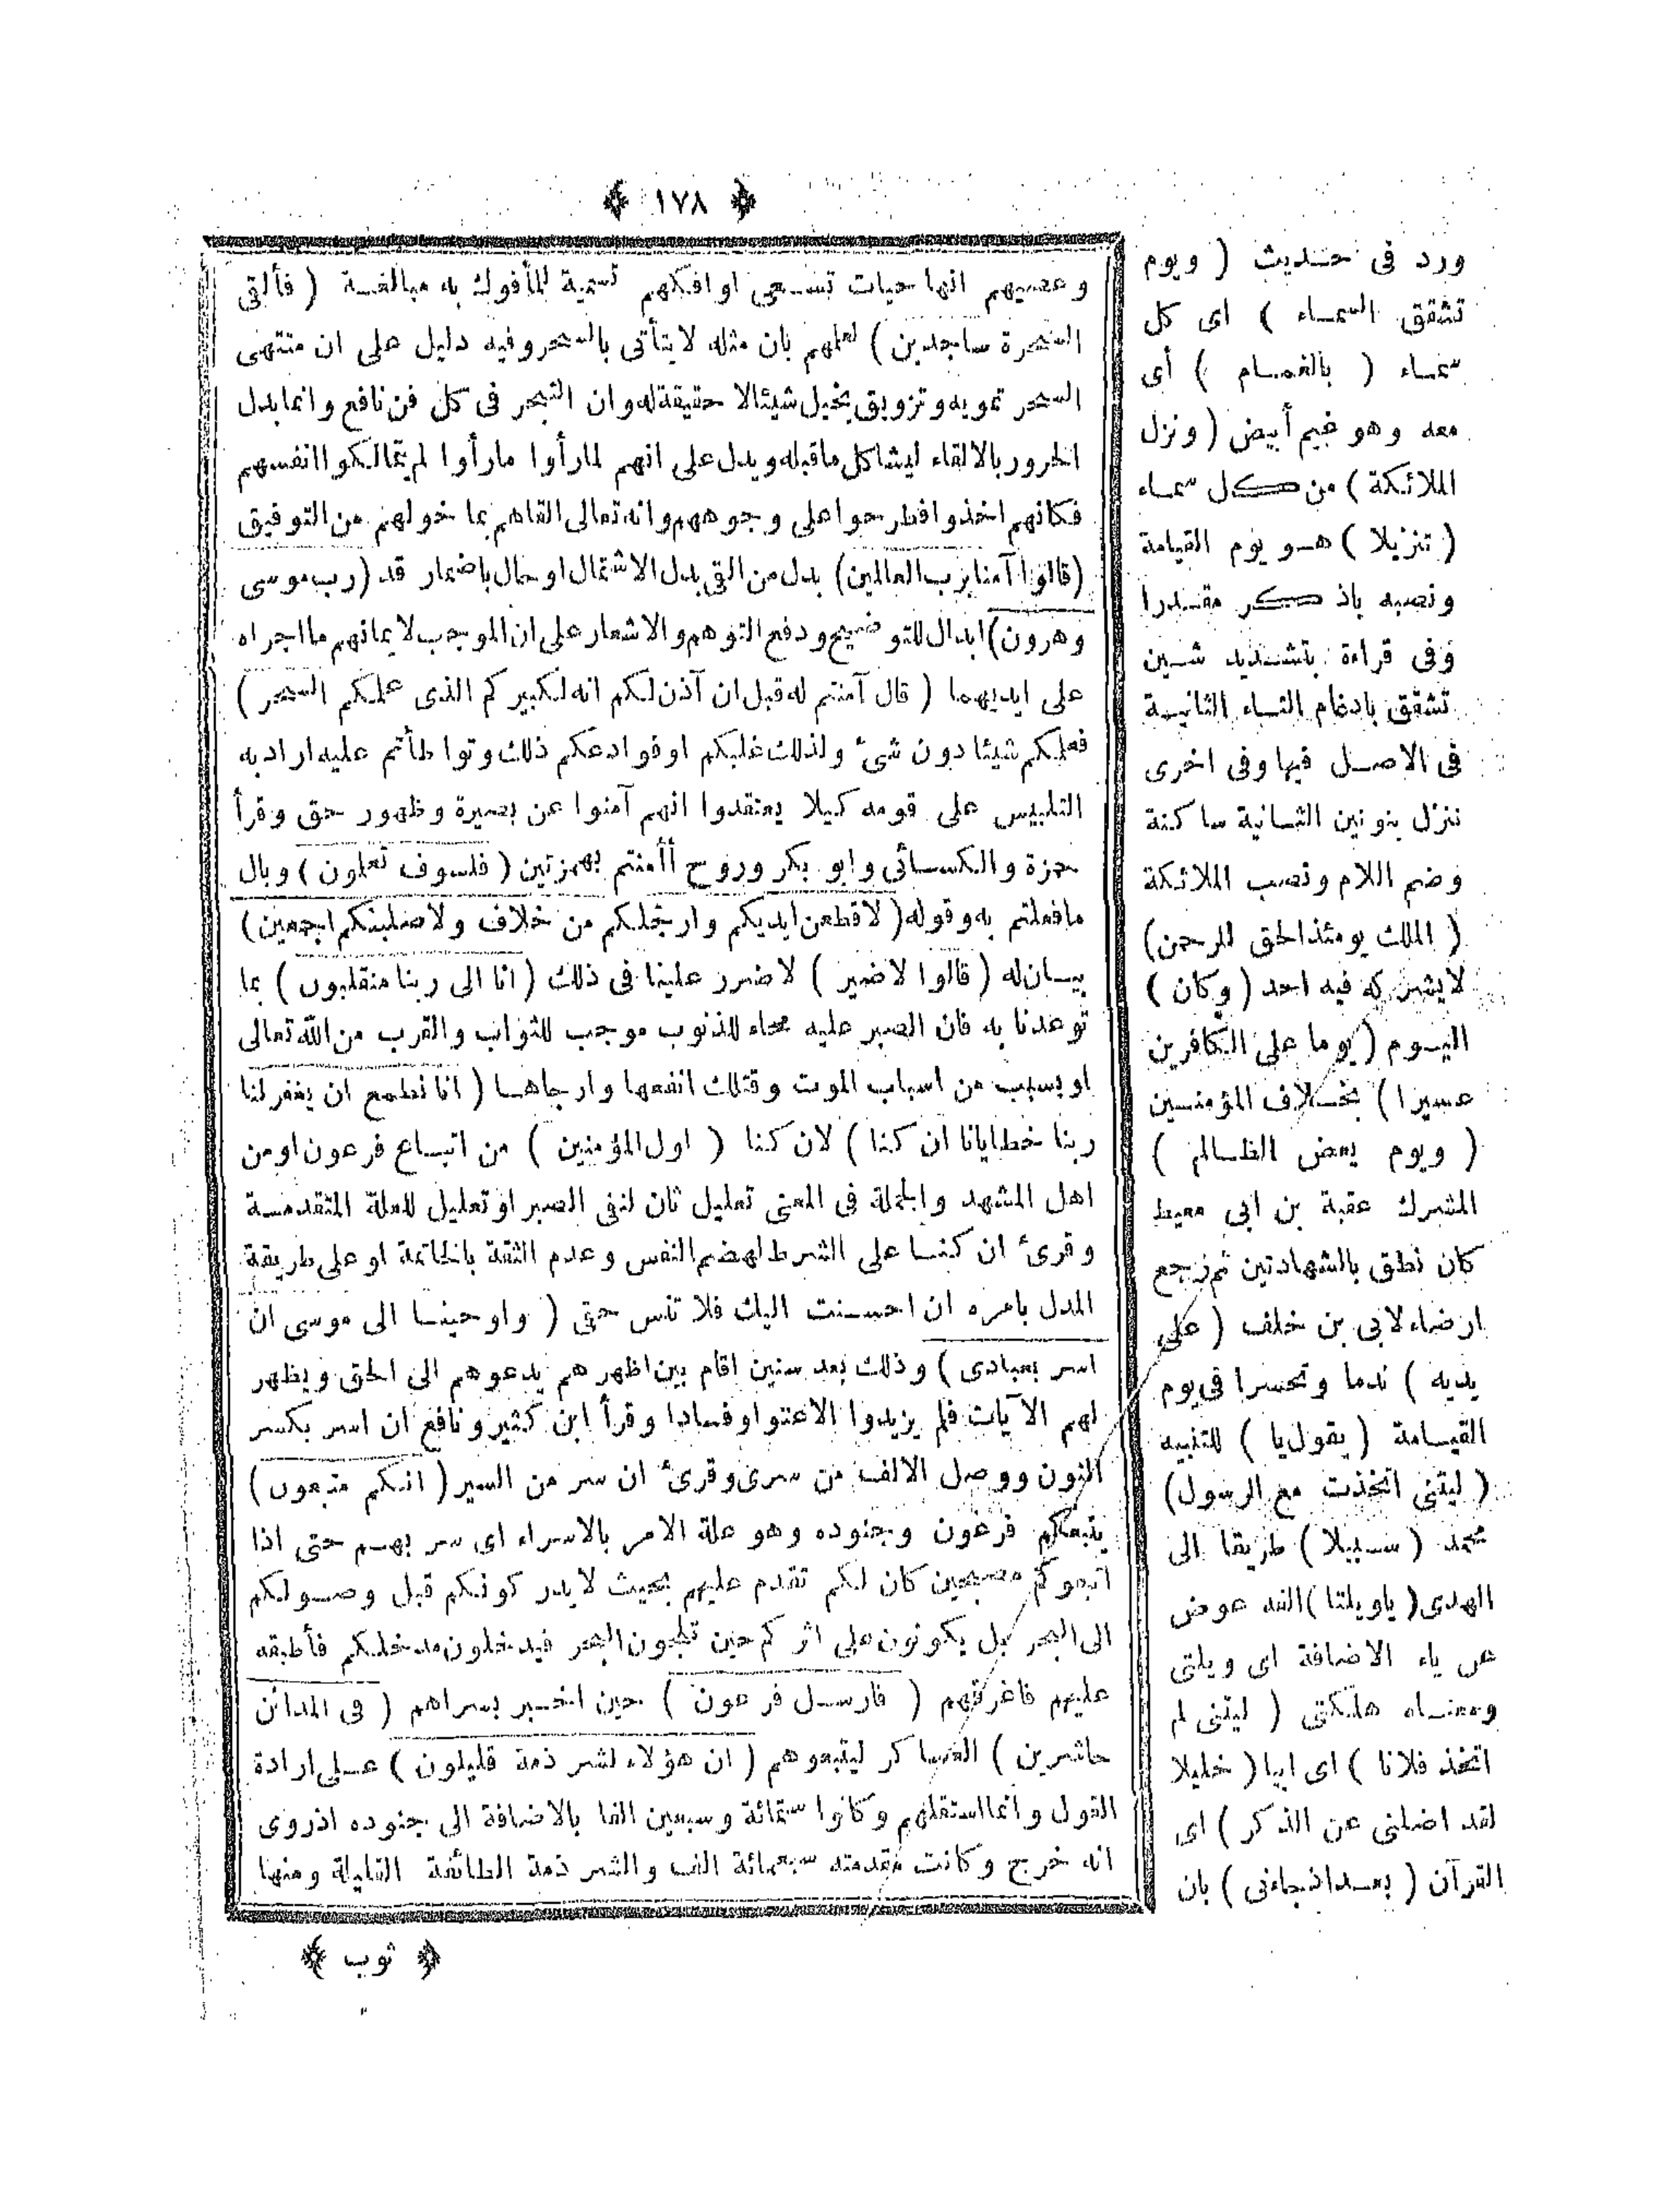 ﴿ ١٧٨ ﴾
وعصيهم انها حيات تسعى او افكهم تسمية للمأفوك به مبالغة ( فألقى
السحرة ساجدين ) لعلهم بان مثله لا يتأتى بالسحر وفيه دليل على ان منتهى
السحر تمويه وتزويق يخيل شيئا لا حقيقة له وان التبحر فى كل فن نافع وانما بدل
الخرور بالالقاء ليشاكل ما قبله ويدل على انهم لما رأوا ما رأوا لم يتمالكوا انفسهم
فكانهم اخذوا فطرحوا على وجوههم وانه تعالى القاهم بما خولهم من التوفيق
( قالوا آمنا برب العالمين ) بدل من القى بدل الاشتمال او حال باضمار قد ( رب موسى
وهرون ) ابدال للتوضيح ودفع التوهم والاشعار على ان الموجب لايمانهم ما اجراه
على ايديهما ( قال آمنتم له قبل ان آذن لكم انه لكبيركم الذى علمكم السحر )
فعلمكم شيئا دون شئ ولذلك غلبكم او فوادعكم ذلك وتواطأتم عليه اراد به
التلبيس على قومه كيلا يعتقدوا انهم آمنوا عن بصيرة وظهور حق وقرأ
حمزة والكسائى وابو بكر وروح أأمنتم بهمزتين ( فلسوف تعلون ) وبال
مافعلتم به وقوله ( لاقطعن ايديكم وارجلكم من خلاف ولاصلبنكم اجمعين )
بيان له ( قالوا لا ضير ) لا ضرر علينا فى ذلك ( انا الى ربنا منقلبون ) بما
توعدنا به فان الصبر عليه محاء للذنوب موجب للثواب والقرب من الله تعالى
او بسبب من اسباب الموت وقتلك انفعها وارجاها ( انا نطمع ان يغفر لنا
ربنا خطايانا ان كنا ) لان كنا ( اول المؤمنين ) من اتباع فرعون او من
اهل المشهد والجملة فى المعنى تعليل ثان لنفى الصبر او تعليل للعلة المتقدمة
وقرئ ان كنا على الشرط لهضم النفس وعدم الثقة بالخاتمة او على طريقة
المدل بامره ان احسنت اليك فلا تنس حقى ( واوحينا الى موسى ان
اسر بعبادى ) وذلك بعد سنين اقام بين اظهرهم يدعوهم الى الحق ويظهر
لهم الآيات فلم يزيدوا الا عتوا وفسادا وقرأ ابن كثير ونافع ان اسر بكسر
النون ووصل الالف من سرى وقرئ ان سر من السير ( انكم متبعون )
يتبعكم فرعون وجنوده وهو علة الامر بالاسراء اى سر بهم حتى اذا
اتبعوكم مصبحين كان لكم تقدم عليهم بحيث لا يدركونكم قبل وصولكم
الى البحر بل يكونون على اثركم حين تلجون البحر فيدخلون مدخلكم فأطبقه
عليهم فاغرقهم ( فارسل فرعون ) حين اخبر بسراهم ( فى المدائن
حاشرين ) العساكر ليتبعوهم ( ان هؤلاء لشرذمة قليلون ) على ارادة
القول وانما استقلهم وكانوا ستمائة وسبعين الفا بالاضافة الى جنوده اذ روى
انه خرج وكانت مقدمته سبعمائة الف والشرذمة الطائفة القليلة ومنها
ورد فى حديث ( ويوم
تشقق السماء ) اى كل
سماء ( بالغمام ) أى
معه وهو غيم أبيض ( ونزل
الملائكة ) من كل سماء
( تنزيلا ) هو يوم القيامة
ونصبه باذكر مقدرا
وفى قراءة بتشديد شين
تشقق بادغام التاء الثانية
فى الاصل فيها وفى اخرى
ننزل بنونين الثانية ساكنة
وضم اللام ونصب الملائكة
( الملك يومئذ الحق للرحمن )
لا يشركه فيه احد ( وكان )
اليوم ( يوما على الكافرين
عسيرا ) بخلاف المؤمنين
( ويوم يعض الظالم )
المشرك عقبة بن ابى معيط
كان نطق بالشهادتين ثم رجع
ارضاء لابى بن خلف ( على
يديه ) ندما وتحسرا فى يوم
القيامة ( يقول يا ) للتنبيه
( ليتنى اتخذت مع الرسول )
محمد ( سبيلا ) طريقا الى
الهدى ( ياويلتا ) الفه عوض
عن ياء الاضافة اى ويلتى
ومعناه هلكتى ( ليتنى لم
اتخذ فلانا ) اى ابيا ( خليلا
لقد اضلنى عن الذكر ) اى
القرآن ( بعد اذ جاءنى ) بان
﴿ ثوب ﴾